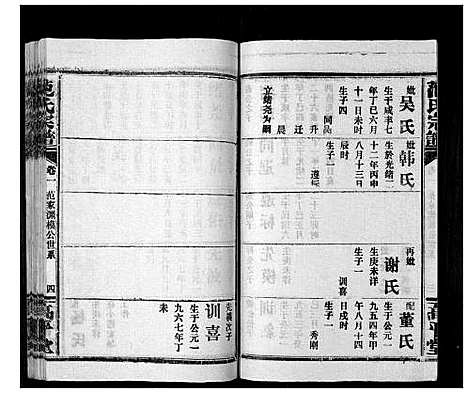 范氏宗譜
妣
吴氏
生于咸丰七
年丁巳六月
十一日未时
生子四
同品
升
迁
晨
立绪尧为嗣
妣
韩氏
生於光绪二
十二年丙申
八月十三日
辰时
生子一
遵
再妣
谢氏
生庚未详
生子一
训喜
配
董氏
生于公元一
九五四年甲
午八月十四
日戌时
生子一
秀刚
高平堂
范氏宗譜
卷一
范家源模公世系
四
高平堂
先模次子
训喜
生于公元一
九六七年丁
未